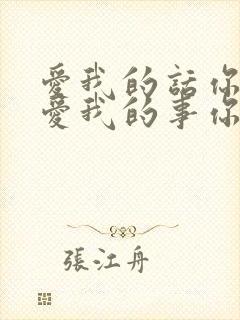 愛我的話你
愛我的事你
張江舟